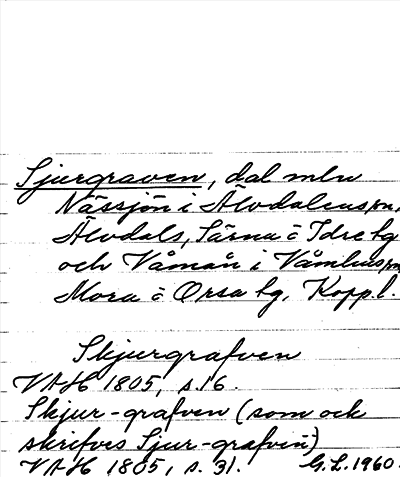 Sjurgraven, dal mln
Nässjön i Älvdalens sn,
Älvdals, Särna o Idre tg
och Våmån i Våmhus sn,
Mora o Orsa tg, Kopp.l.
Skjurgrafven
VAH 1805, s. 16.
Skjur-grafven (som ock
skrifves Sjur-grafven)
VAH 1805, s. 31. G.L. 1960.